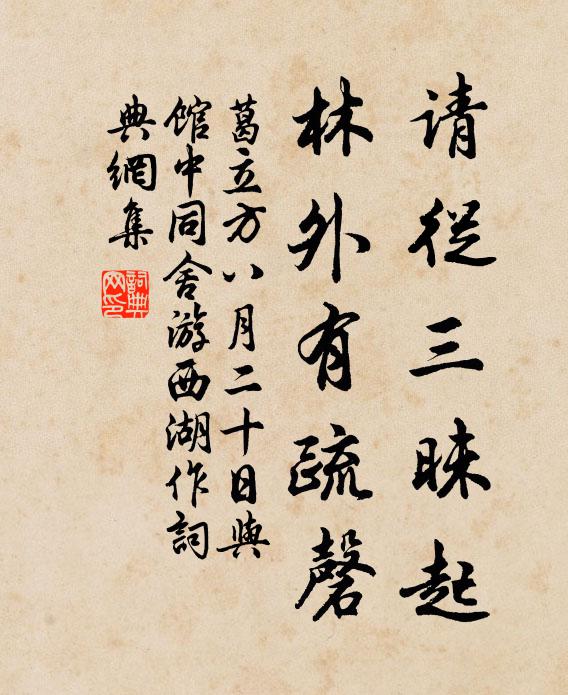 请從三昧起
林外有疏磬
葛立方八月二十日與
馆中同舍游西湖作詞
典網集
詞典
网印